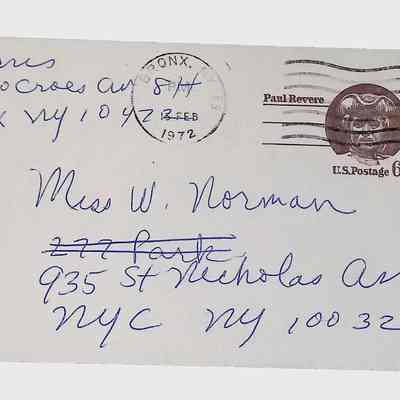 BRONX, NY
PM
13 FEB
1972
Paul Revere
U.S.Postage 6
Croes Av 8H
NY 10472
Miss W. Norman
277 Park
935 St Nicholas Av
NYC NY 10032